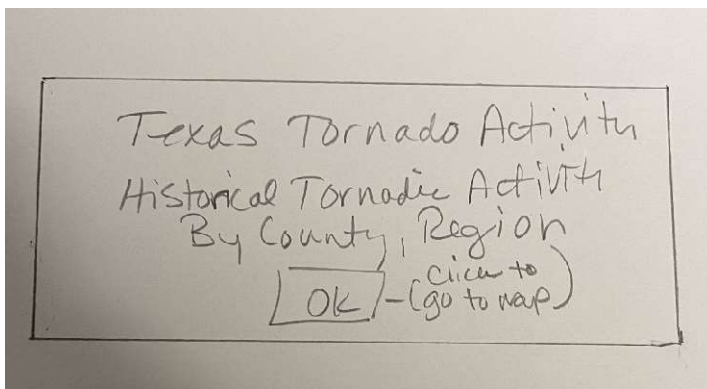 Texas Tornado Activity
Historical Tornadic Activity
By County, Region
OK - (click to
go to map)